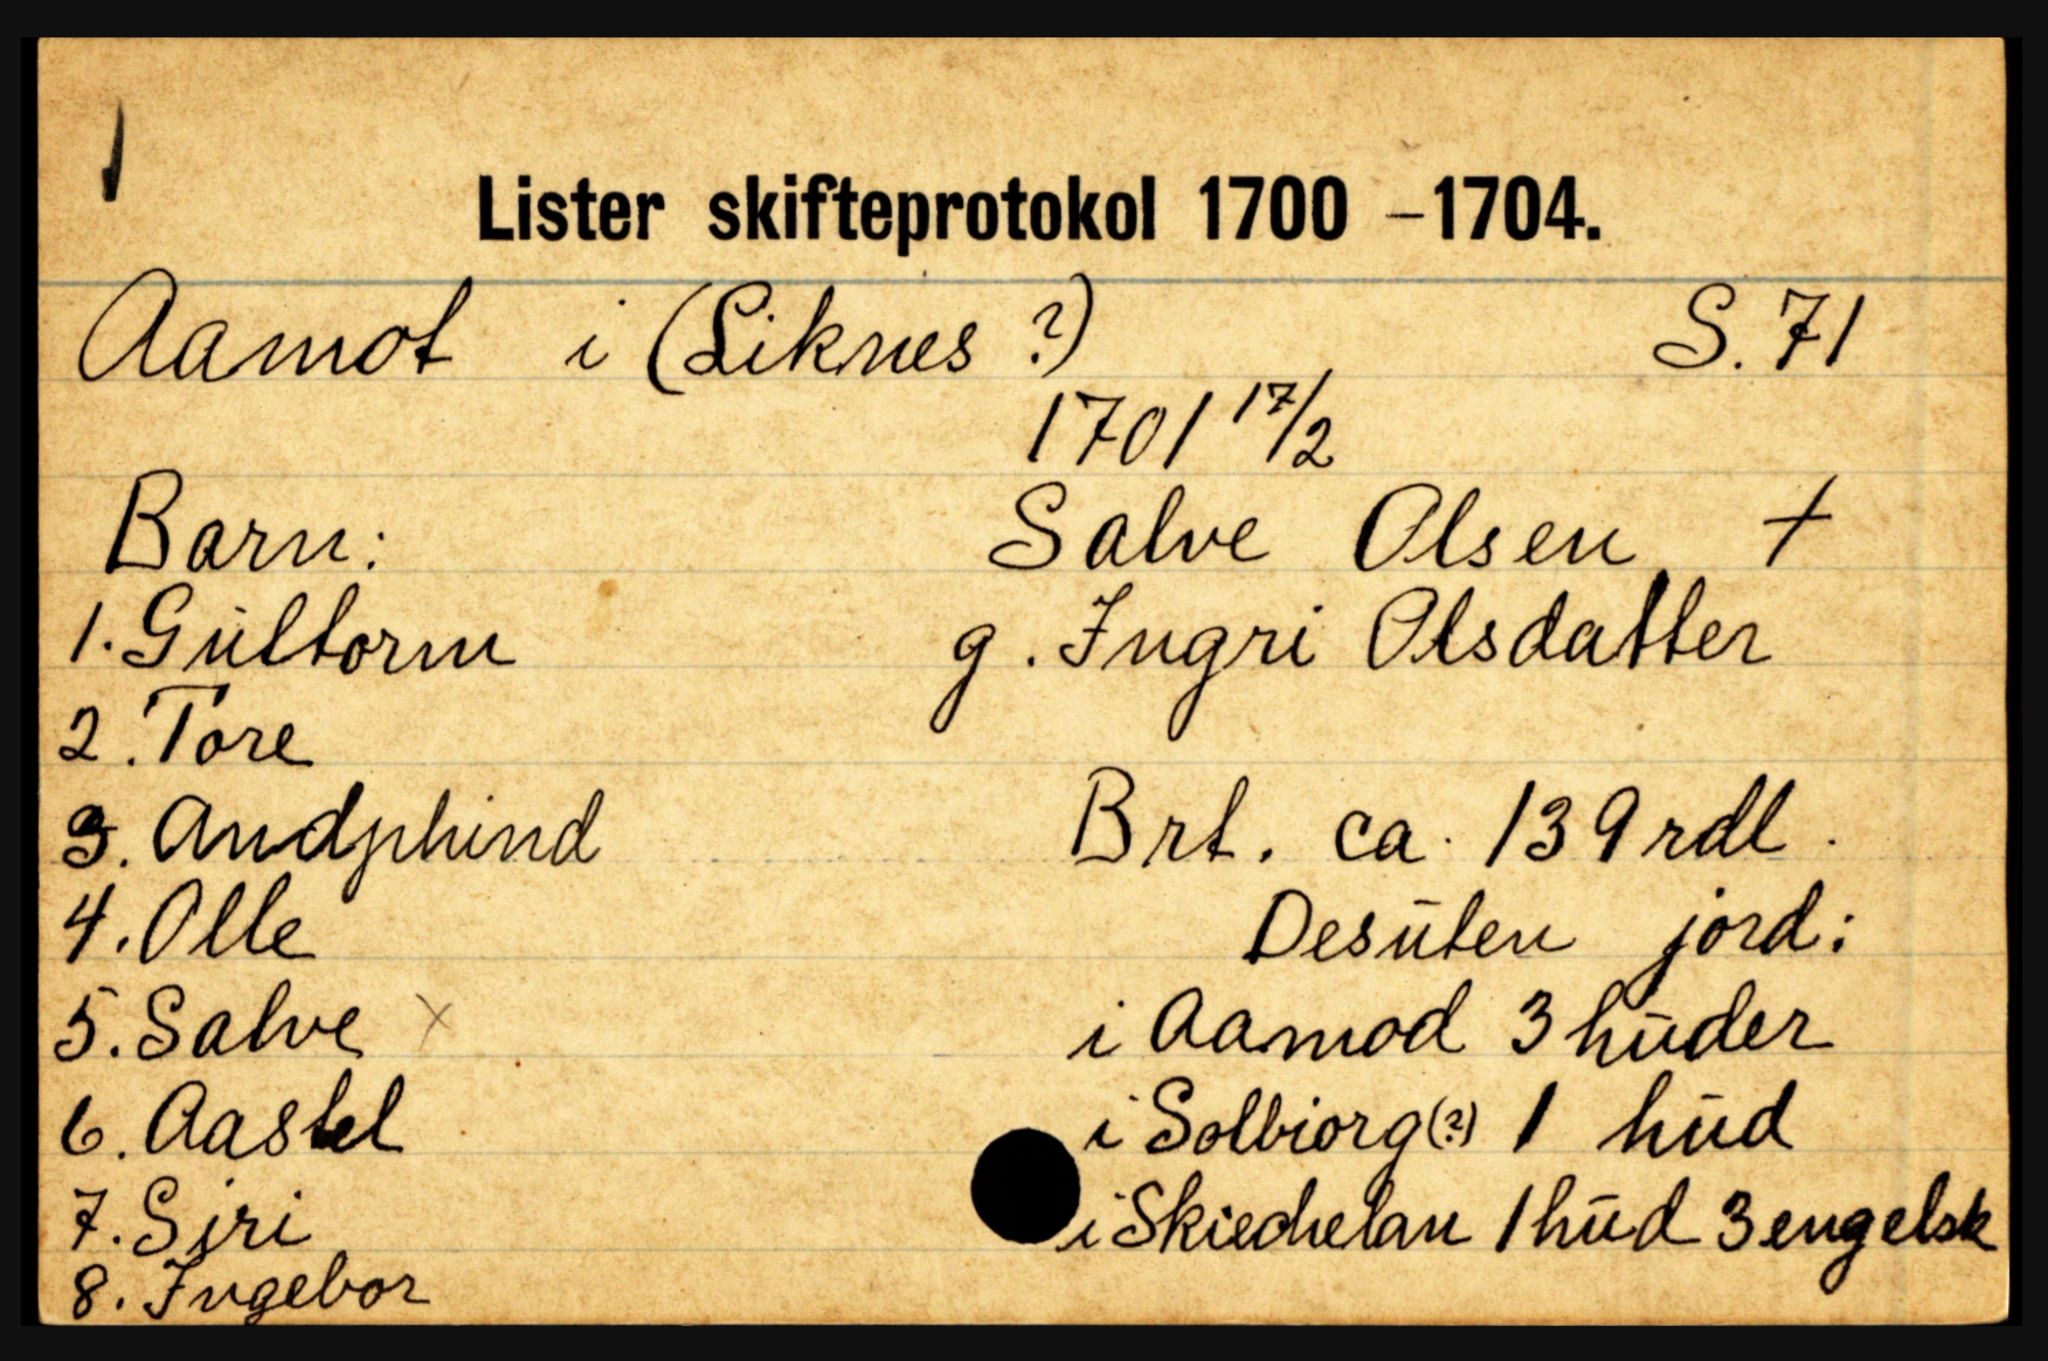 Lister skifteprotokol 1700 – 1704.
Aamot i (Liknes ?) S. 71
1701 17/2
Salve Olsen †
g. Ingri Olsdatter
Barn:
1. Gūltorm
2. Tore
3. Andphind
4. Olle
5. Salve x
6. Aastel
7. Siri
8. Ingebor
Brt. ca. 139 rdl.
Desūten jord:
i Aamod 3 hūder
i Solbiorg (?) 1 hūd
i Skiedhelan 1 hūd 3 engelsk